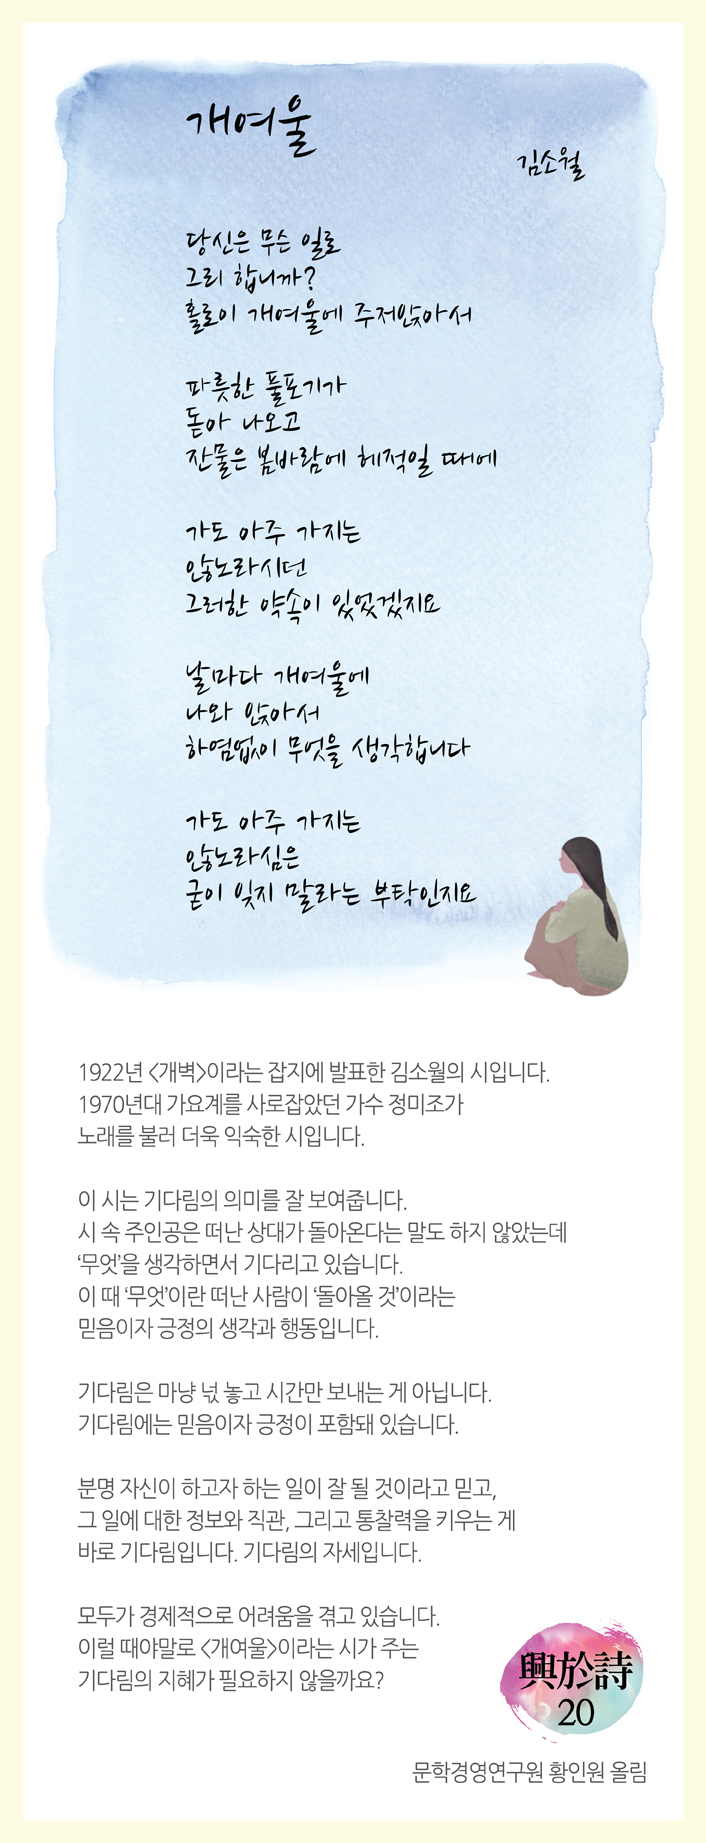 개여울
김소월
당신은 무슨 일로
그리 합니까?
홀로이 개여울에 주저앉아서
파릇한 풀포기가
돋아 나오고
잔물은 봄바람에 헤적일 때에
가도 아주 가지는
않노라시던
그러한 약속이 있었겠지요
날마다 개여울에
나와 앉아서
하염없이 무엇을 생각합니다
가도 아주 가지는
않노라심은
굳이 잊지 말라는 부탁인지요
1922년 <개벽>이라는 잡지에 발표한 김소월의 시입니다.
1970년대 가요계를 사로잡았던 가수 정미조가
노래를 불러 더욱 익숙한 시입니다.
이 시는 기다림의 의미를 잘 보여줍니다.
시 속 주인공은 떠난 상대가 돌아온다는 말도 하지 않았는데
‘무엇’을 생각하면서 기다리고 있습니다.
이 때 ‘무엇’이란 떠난 사람이 ‘돌아올 것’이라는
믿음이자 긍정의 생각과 행동입니다.
기다림은 마냥 넋 놓고 시간만 보내는 게 아닙니다.
기다림에는 믿음이자 긍정이 포함돼 있습니다.
분명 자신이 하고자 하는 일이 잘 될 것이라고 믿고,
그 일에 대한 정보와 직관, 그리고 통찰력을 키우는 게
바로 기다림입니다. 기다림의 자세입니다.
모두가 경제적으로 어려움을 겪고 있습니다.
이럴 때야말로 <개여울>이라는 시가 주는
기다림의 지혜가 필요하지 않을까요?
興於詩
20
문학경영연구원 황인원 올림